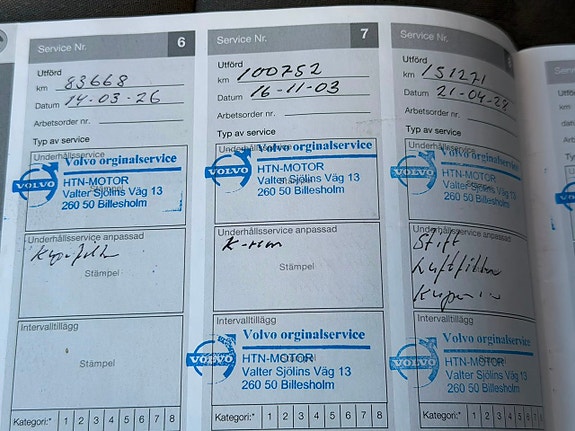 Service Nr. 6
Utförd
km 83668
Datum 14-03-26
Arbetsorder nr.
Typ av service
Underhållsservice
Volvo orginalservice
VOLVO
HTN-MOTOR
Valter Sjölins Väg 13
260 50 Billesholm
Underhållsservice anpassad
Stämpel
Intervalltillägg
Stämpel
Kategori:* 1 2 3 4 5 6 7 8
Service Nr. 7
Utförd
km 100752
Datum 16-11-03
Arbetsorder nr.
Typ av service
Underhållsservice
Volvo orginalservice
VOLVO
HTN-MOTOR
Valter Sjölins Väg 13
260 50 Billesholm
Underhållsservice anpassad
K-rem
Stämpel
Intervalltillägg
Volvo orginalservice
VOLVO
HTN-MOTOR
Valter Sjölins Väg 13
260 50 Billesholm
Kategori:* 1 2 3 4 5 6 7 8
Service Nr. 8
Utförd
km 151271
Datum 21-04-28
Arbetsorder nr.
Typ av service
Underhållsservice
Volvo orginalservice
VOLVO
HTN-MOTOR
Valter Sjölins Väg 13
260 50 Billesholm
Underhållsservice anpassad
Stift
Luftfilter
Intervalltillägg
Volvo orginalservice
VOLVO
HTN-MOTOR
Valter Sjölins Väg 13
260 50 Billesholm
Kategori:* 1 2 3 4 5 6 7 8